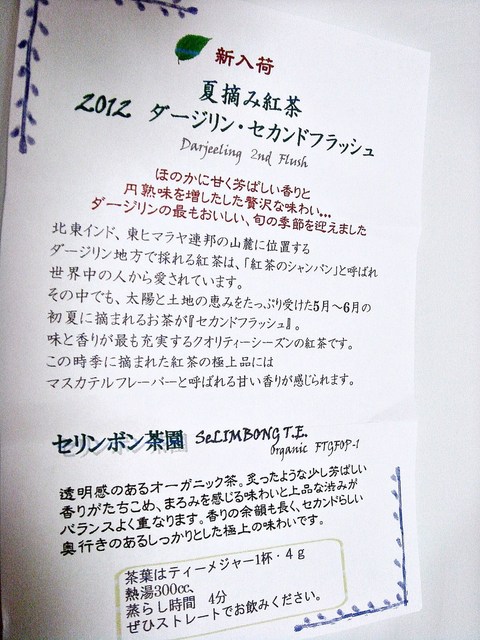 新入荷
夏摘み紅茶
2012 ダージリン・セカンドフラッシュ
Darjeeling 2nd Flush
ほのかに甘く芳ばしい香りと
円熟味を増したした贅沢な味わい…
ダージリンの最もおいしい、旬の季節を迎えました
北東インド、東ヒマラヤ連邦の山麓に位置する
ダージリン地方で採れる紅茶は、「紅茶のシャンパン」と呼ばれ
世界中の人から愛されています。
その中でも、太陽と土地の恵みをたっぷり受けた5月～6月の
初夏に摘まれるお茶が『セカンドフラッシュ』。
味と香りが最も充実するクオリティーシーズンの紅茶です。
この時季に摘まれた紅茶の極上品には
マスカテルフレーバーと呼ばれる甘い香りが感じられます。
セリンボン茶園 SeLIMBONG T.E.
Organic FTGFOP-1
透明感のあるオーガニック茶。炙ったような少し芳ばしい
香りがたちこめ、まろみを感じる味わいと上品な渋みが
バランスよく重なります。香りの余韻も長く、セカンドらしい
奥行きのあるしっかりとした極上の味わいです。
茶葉はティーメジャー1杯・4g
熱湯300cc、
蒸らし時間 4分
ぜひストレートでお飲みください。